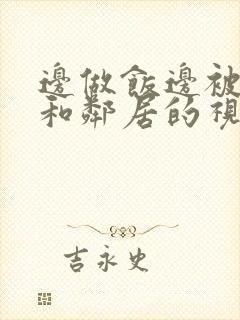 邊做飯邊被
和鄰居的視
吉永史